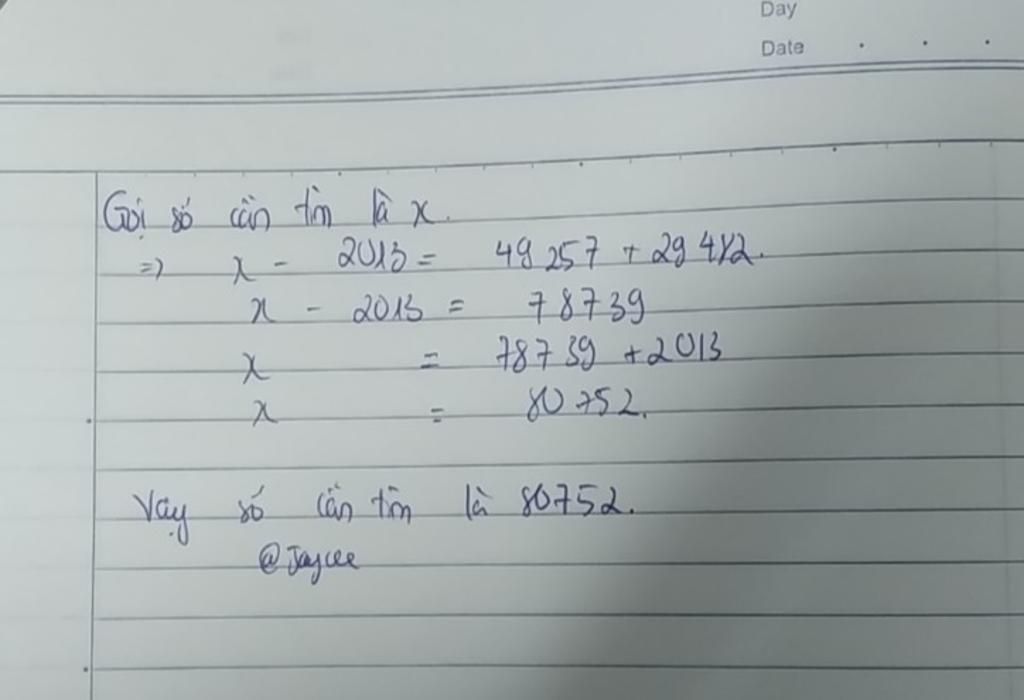 Day
Date
Gọi số cần tìm là x.
=> x - 2013 = 49 257 + 29 482.
x - 2013 = 78739
x = 78739 + 2013
x = 80752.
Vậy số cần tìm là 80752.
@Jaycee